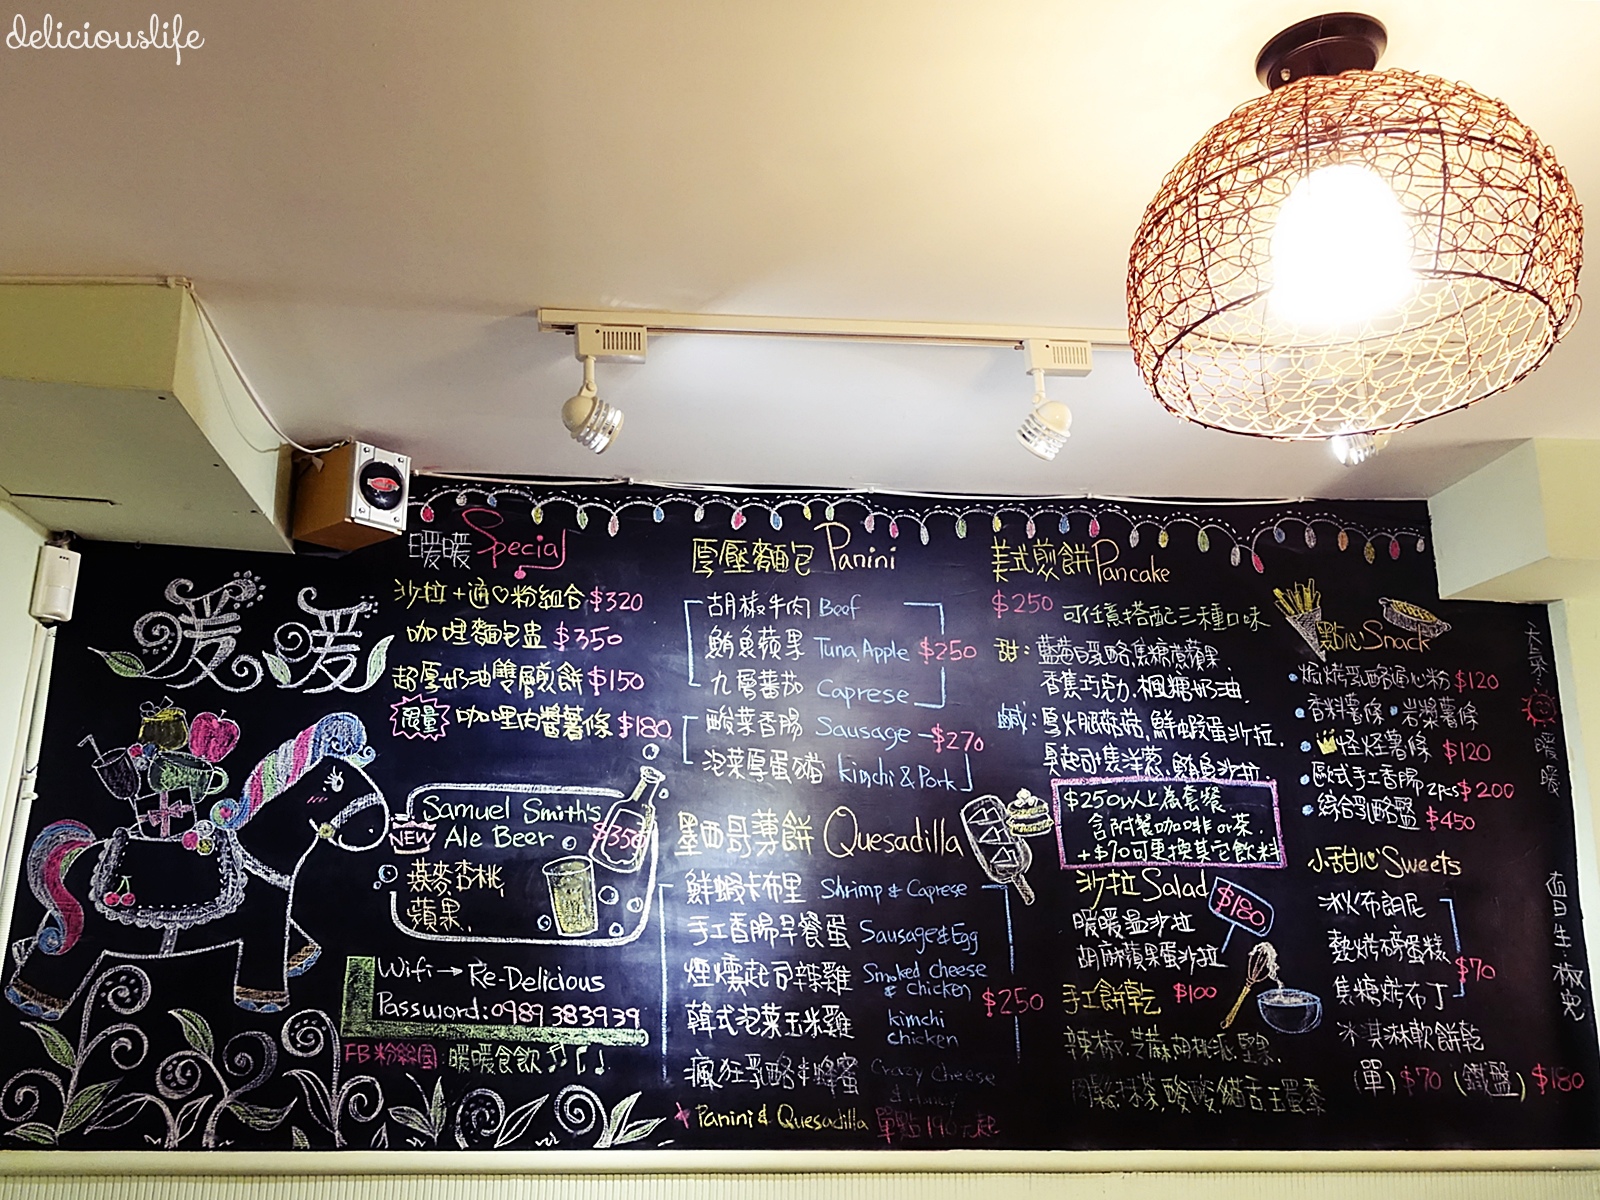 deliciouslife
暖暖
暖暖 Special
沙拉+通♡粉組合 $320
咖哩麵包盅 $350
超厚奶油雙層煎餅 $150
限量 咖哩肉醬薯條 $180
Samuel Smith's
NEW Ale Beer $350
燕麥.杏桃,
蘋果.
Wifi→ Re-Delicious
Password:0989383939
FB粉絲團:暖暖食飲
厚壓麵包 Panini
胡椒牛肉 Beef
鮪魚蘋果 Tuna, Apple $250
九層蕃茄 Caprese
酸菜香腸 Sausage $270
泡菜厚蛋豬 kimchi & Pork
墨西哥薄餅 Quesadilla
鮮蝦卡布里 Shrimp & Caprese
手工香腸早餐蛋 Sausage & Egg
煙燻起司辣雞 Smoked cheese & chicken $250
韓式泡菜玉米雞 kimchi chicken
瘋狂乳酪半蜂蜜 Crazy Cheese & Honey
Panini & Quesadilla 單點190元起
美式煎餅 Pancake
$250 可任意搭配三種口味
甜: 藍莓白乳酪.焦糖煮蘋果.
香蕉巧克力.楓糖奶油.
鹹: 厚火腿菇菇.鮮蝦蛋沙拉.
鮪魚沙拉.
$250以上為套餐.
含附餐咖啡or茶.
+$70可更換其它飲料
沙拉 Salad $180
暖暖溫沙拉
胡麻蘋果蛋沙拉
手工餅乾 $100
點心 Snack
焗烤乳酪通心粉 $120
香料薯條 · 岩漿薯條
怪怪薯條 $120
歐式手工香腸 2pcs $200
綜合乳酪盤 $450
小甜心 Sweets
冰火布朗尼
熱烤磅蛋糕 $70
焦糖烤布丁
冰淇淋軟餅乾
(單) $70 (鐵盤) $180